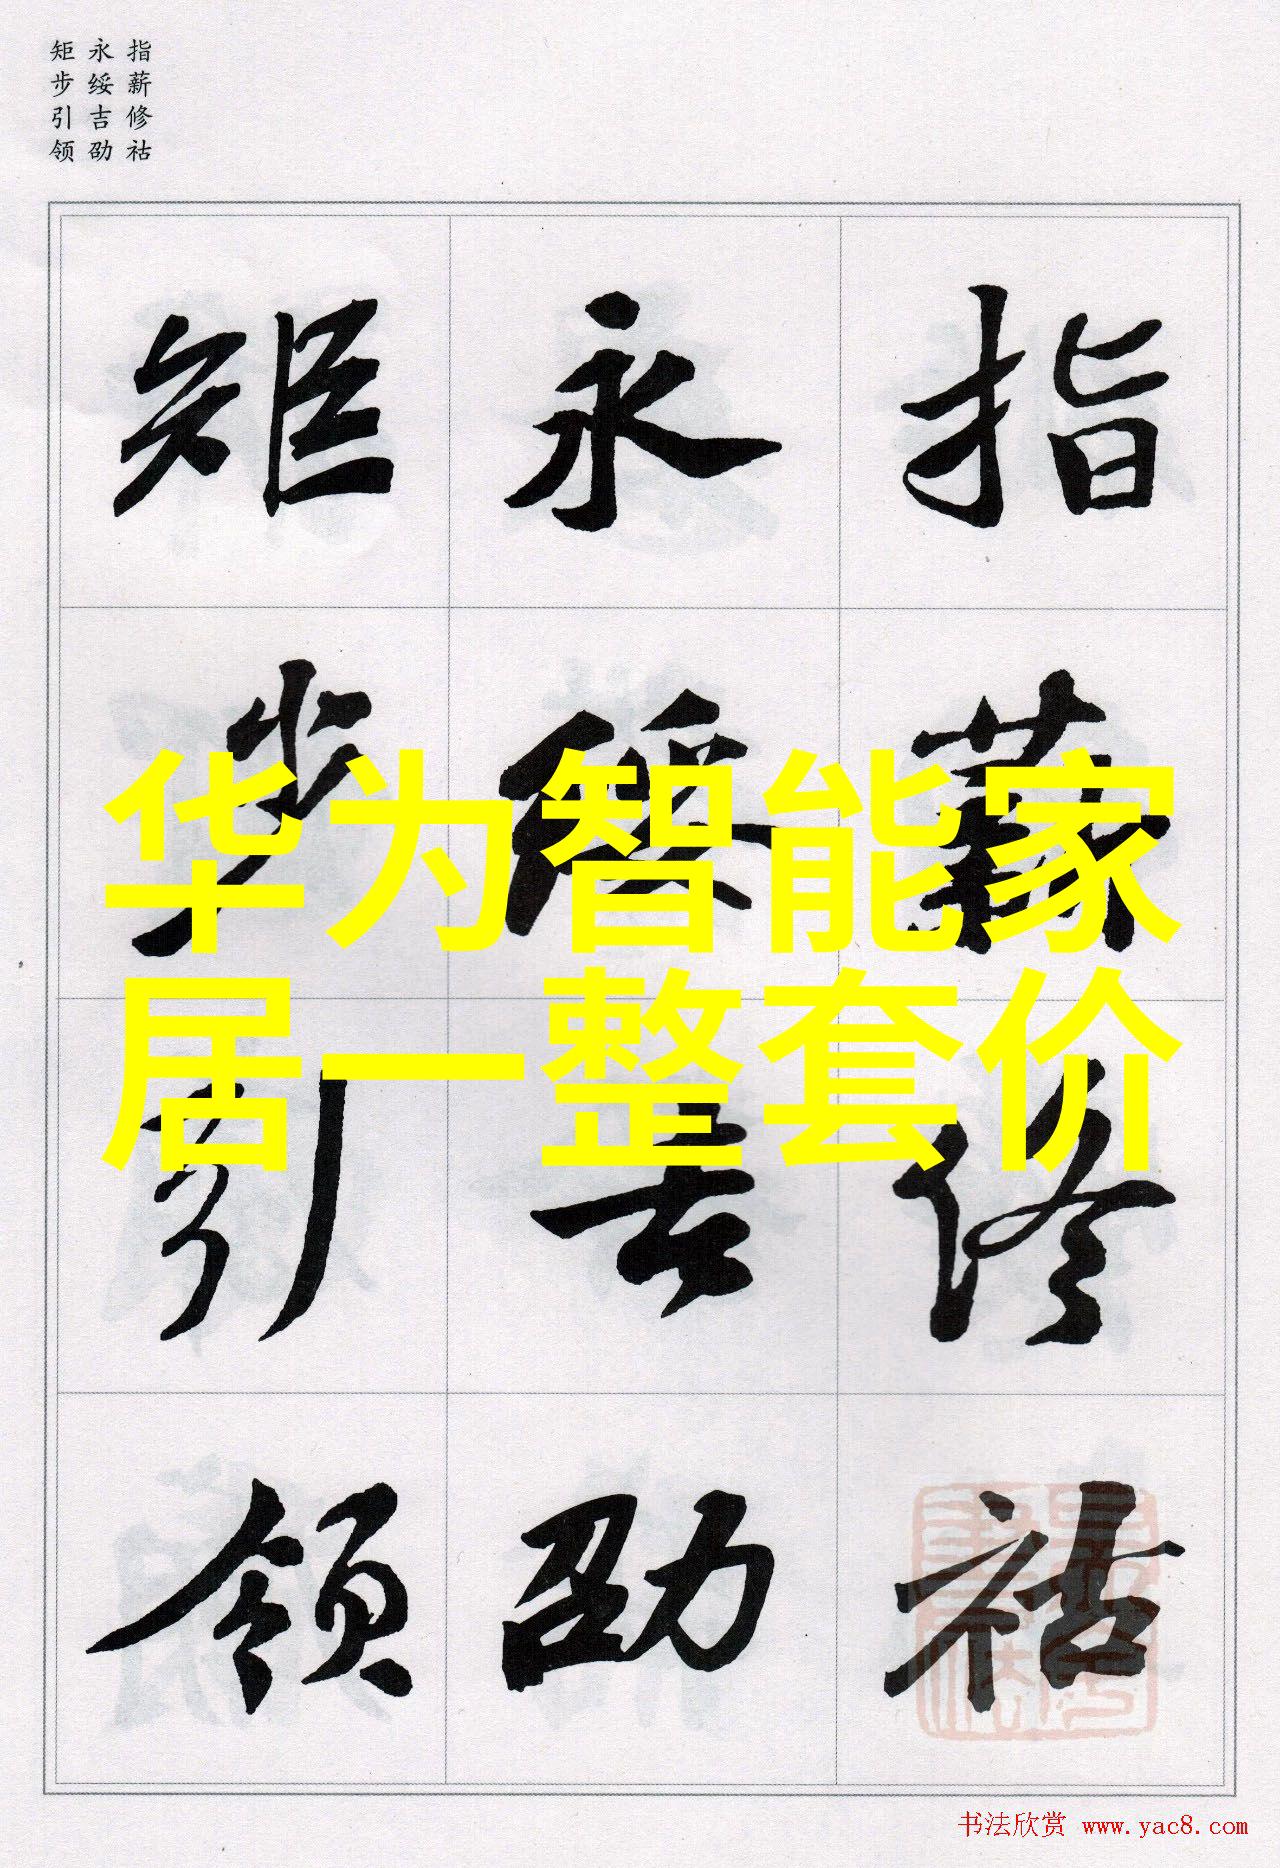 指薪修祜
永绥吉劭
矩步引领
指薪修祜
永绥吉劭
矩步引领
华为智能家
居一整套价
书法欣赏 www.yac8.com